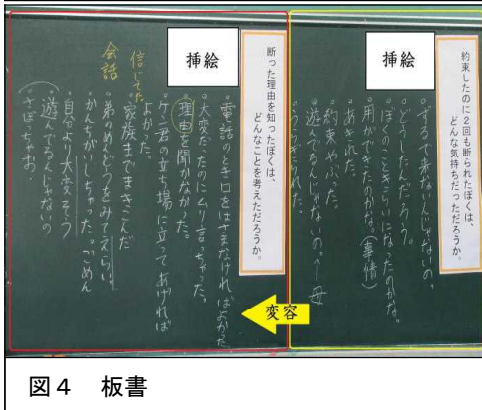 約束したのに2回も断られたぼくは、
どんな気持ちだっただろうか。
挿絵
・どうしたんだろう。
・ぼくのこときらいになったのかな。
・用ができたのかな。(事情)
・あきれた。
・約束やぶった。
・遊んでるんじゃないの。← 母
・うらぎられた。
変容
断った理由を知ったぼくは、
どんなことを考えただろうか。
挿絵
・電話のとき口をはさまなければよかった
・大変だったのにムリ言っちゃった。
理由を聞けばよかった。
・ケン君の立ち場に立ってあげれば
よかった。
・家族をまきこんだ
・弟のめんどうをみてえらい。
・かんちがいしちゃった。ごめん
・自分より大変そう
・遊んでるんじゃないの
信じて
会話
図4 板書